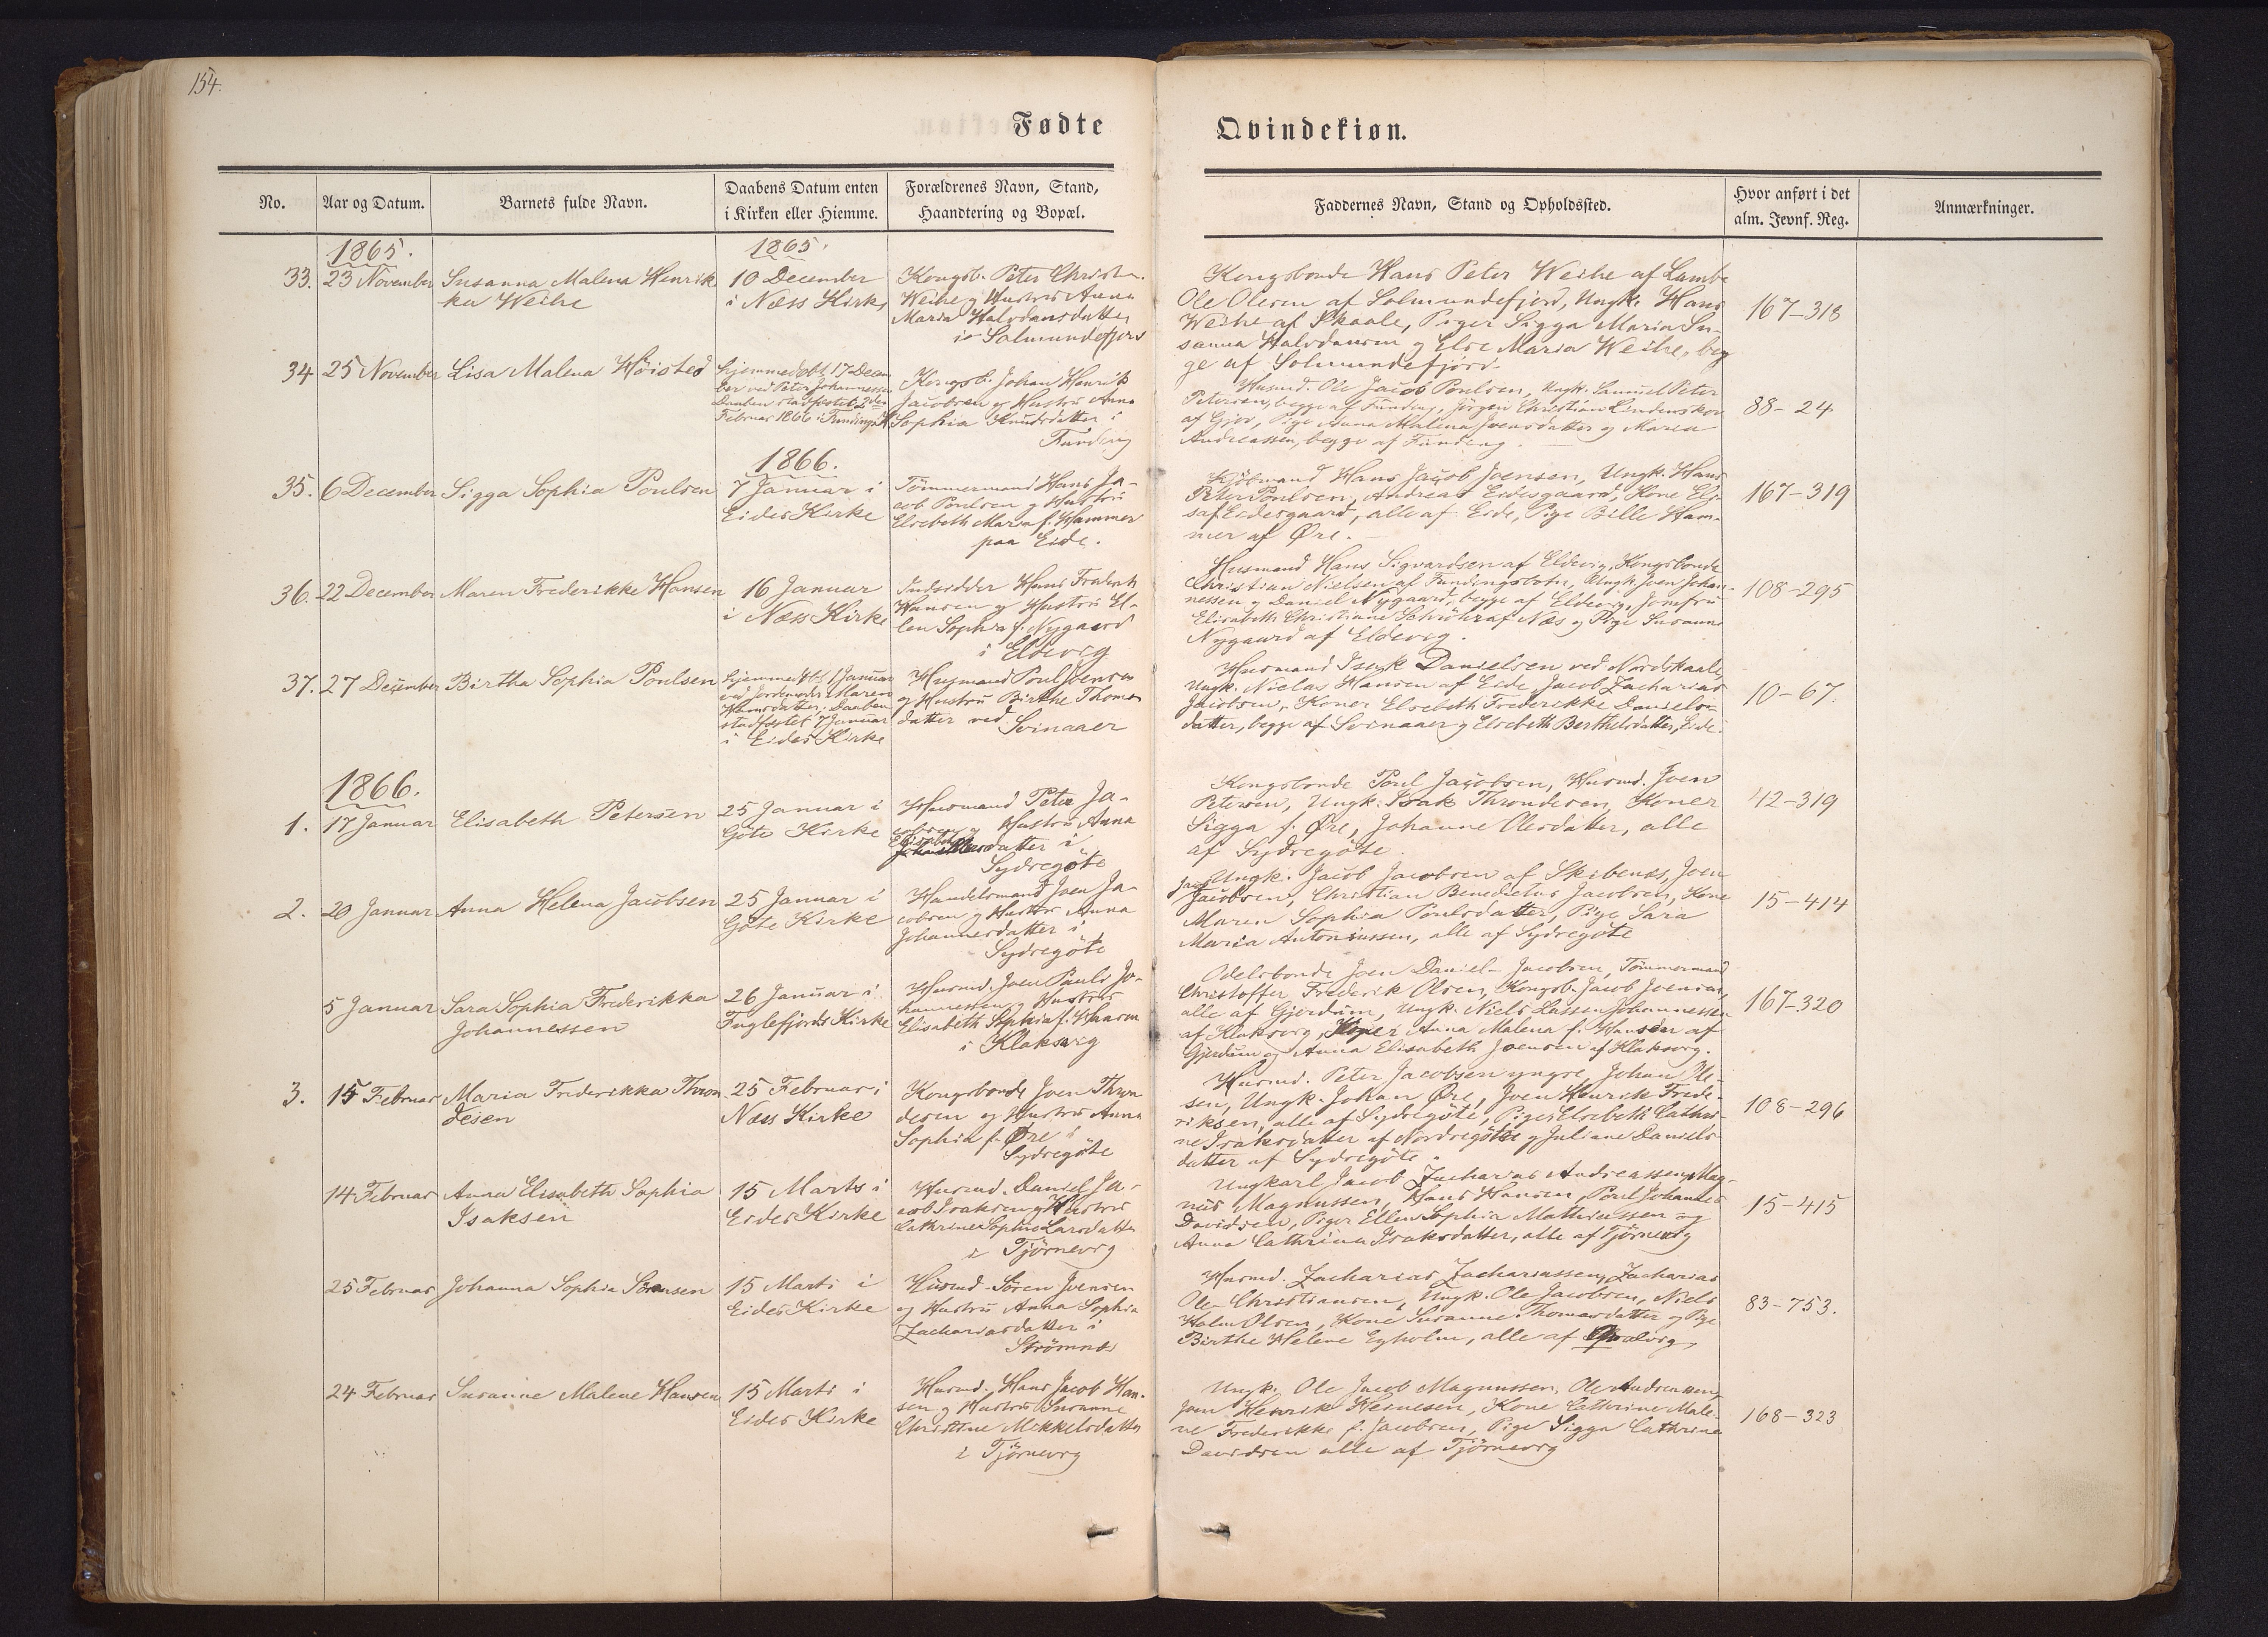 154.
Fødte
Qvindekiøn.
No.
Aar og Datum.
Barnets fulde Navn.
Daabens Datum enten
i Kirken eller Hiemme.
Forældrenes Navn, Stand,
Haandtering og Bopæl.
Faddernes Navn, Stand og Opholdssted.
Hvor anført i det
alm. Jevnf. Reg.
Anmærkninger.
1865.
1865.
33.
23 November
Susanna Malena Henrik
ka Weihe
10 December
i Næss Kirke
Kongsb. Peter Christ.
Weihe og Hustru Anna
Maria Halvdansdatter
i Solmundefjord
Kongsbonde Hans Peter Weihe af Lambe
Ole Olesen af Solmundefjord, Ungk. Hans
Weihe af Skaale, Piger Sigga Maria Su-
sanna Halvdansen og Else Maria Weihe, beg
ge af Solmundefjörd.
167-318
34
25 November
Lisa Malena Höisted
hjemmedöbt 17 Decem
ber ved Peter Johannessen
Daaben stadfæstet 2den
Februar 1866 i Fundings K
Kongsb. Johan Henrik
Jacobsen og Hustru Anna
Sophia Knudsdatter i
Funding
Husmd. Ole Jacob Poulsen, Ungk. Samuel Peter
Petersen, begge af Funding, Jörgen Christian Lindenskov
af Gjov, Pige Anna Malena Joensdatter og Maria
Andreassen, begge af Funding.
88-24
1866.
35.
6 December
Sigga Sophia Poulsen
7 Januar i
Eides Kirke
Tömmermand Hans Ja-
cob Poulsen og Hustru
Elsebeth Maria f. Hammer
paa Eide.
Kjöbmand Hans Jacob Joensen, Ungk. Hans
Peter Poulsen, Andreas Eidesgaard, Kone El-
saf Eidesgaard, alle af Eide, Pige Bille Ham-
mer af Øre.
167-319
36.
22 December
Maren Frederikke Hansen
16 Januar
i Næss Kirke
Indsidder Hans Frederik
Hansen og Hustru El-
len Sophia f. Nygaard
i Eldevig
Husmand Hans Sigvardsen af Eldevig, Kongsbonde
Christian Nielsen af Fundingsbotn, Ungk. Joen Johan-
nessen og Daniel Nygaard, begge af Eldevig, Jomfru
Elisabeth Christiane Schröter af Næs og Pige Susanne
Nygaard af Eldevig.
108-295
37.
27 December
Birtha Sophia Poulsen
hjemmedöbt 1 Januar
ved Jordemoder Maren
Hansdatter, Daaben
stadfæstet 7 Januar
i Eides Kirke
Husmand Poul Joensen
og Hustru Birthe Thomas
datter ved
Svinaaer
Husmand Isak Danielsen ved Nordskaale,
Ungk. Niclas Hansen af Eide, Jacob Zacharias
Jacobsen, Koner Elsebeth Frederikke Daniels-
datter, begge af Svinaaer og Elsebeth Berthelsdatter, Eide.
10-67.
1866.
1.
17 Januar
Elisabeth Petersen
25 Januar i
Göte Kirke
Husmand Peter Ja-
cobsen og Hustru Anna
Elisabeth
datter i
Sydregöte
Kongsbonde Poul Jacobsen, Husmd. Joen
Petersen, Ungk. Isak Throndesen, Koner
Sigga f. Øre, Johanne Olesdatter, alle
af Sydregöte.
42-319
2.
20 Januar
Anna Helena Jacobsen
25 Januar i
Göte Kirke
Handelsmand Joen Ja-
cobsen og Hustru Anna
Johannesdatter i
Sydregöte
Ungk. Jacob Jacobsen af Skibenæs, Joen
Jacobsen, Christian Benedictus Jacobsen, Kone
Maren Sophia Poulsdatter, Pige Sara
Maria Antoniussen, alle af Sydregöte
15-414
5 Januar
Sara Sophia Frederikka
Johannessen
26 Januar i
Fuglefjords Kirke
Husmd. Joen Pauli Jo-
hannessen og Hustru
Elisabeth Sophia f. Hansen
i Klaksvig
Odelsbonde Joen Daniel Jacobsen, Tömmermand
Christoffer Frederik Olsen, Kongsb. Jacob Joensen,
alle af Gjerdum, Ungk. Niels Lassen Johannessen
af Klaksvig, Koner Anna Malena f. Hansen af
Gjerdum og Anna Elisabeth Joensen af Klaksvig.
167-320
3.
15 Februar
Maria Frederikka Thron
desen
25 Februar i
Næss Kirke
Kongsbonde Joen Thron
desen og Hustru Anna
Sophia f. Øre i
Sydregöte
Husmd. Peter Jacobsen yngre, Johan Ole-
sen, Ungk. Johan Øre, Joen Henrik Frede-
riksen, alle af Sydregöte, Piger Elsebeth Cathri-
ne Isaksdatter af Nordregöte og Juliane Daniels-
datter af Sydregöte.
108-296
14 Februar
Anna Elisabeth Sophia
Isaksen
15 Marts i
Eides Kirke
Husmd. Daniel Ja-
cob Isaksen og Hustru
Cathrine Sophie Larsdatter
i Tjörnevig
Ungkarl Jacob Zacharias Andreassen, Mag-
nus Magnussen, Hans Hansen, Poul Johannes
Davidsen, Piger Ellen Sophia Mathiassen og
Anna Cathrina Isaksdatter, alle af Tjörnevig
15-415
25 Februar
Johanna Sophia Sörensen
15 Marts i
Eides Kirke
Husmd. Sören Joensen
og Hustru Anna Sophia
Zachariasdatter i
Strömnæs
Husmd. Zacharias Zachariassen, Zacharias
Ole Christiansen, Ungk. Ole Jacobsen, Niels
Holm Olsen, Kone Susanne Thomasdatter og Pige
Birthe Helene Egholm, alle af Qvalvig
83-753.
24 Februar
Susanne Malene Hansen
15 Marts i
Eides Kirke
Husmd. Hans Jacob Han-
sen og Hustru Susanne
Christine Mikkelsdatter
i Tjörnevig
Ungk. Ole Jacob Magnussen, Ole Andreassen,
Joen Henrik Heinesen, Kone Cathrine Male-
ne Frederikke f. Jacobsen, Pige Sigga Cathrine
Davidsen alle af Tjörnevig
168-323